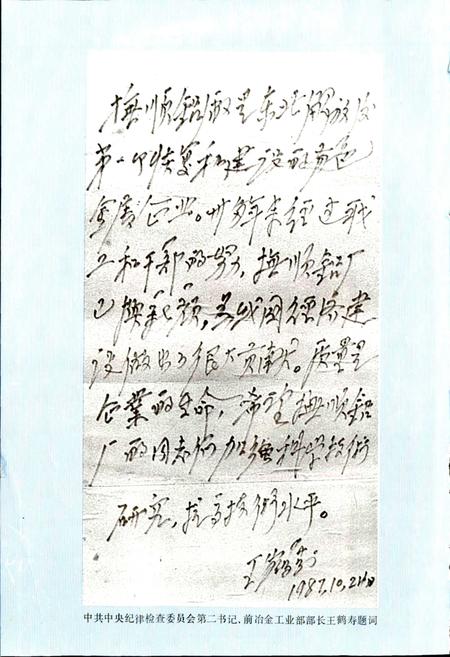 抚顺铝厰是东北解放后
第一个恢复和建设的有色
金属企业。卅多年来经过我
工和干部的努力,抚顺铝厂
已换新颜,为我国经济建
设做出了很大贡献。质量是
企业的生命,希望抚顺铝
厂的同志们加强科学技术
研究,提高技术水平。
王鹤寿
1987.10.21日
中共中央纪律检查委员会第二书记、前冶金工业部部长王鹤寿题词